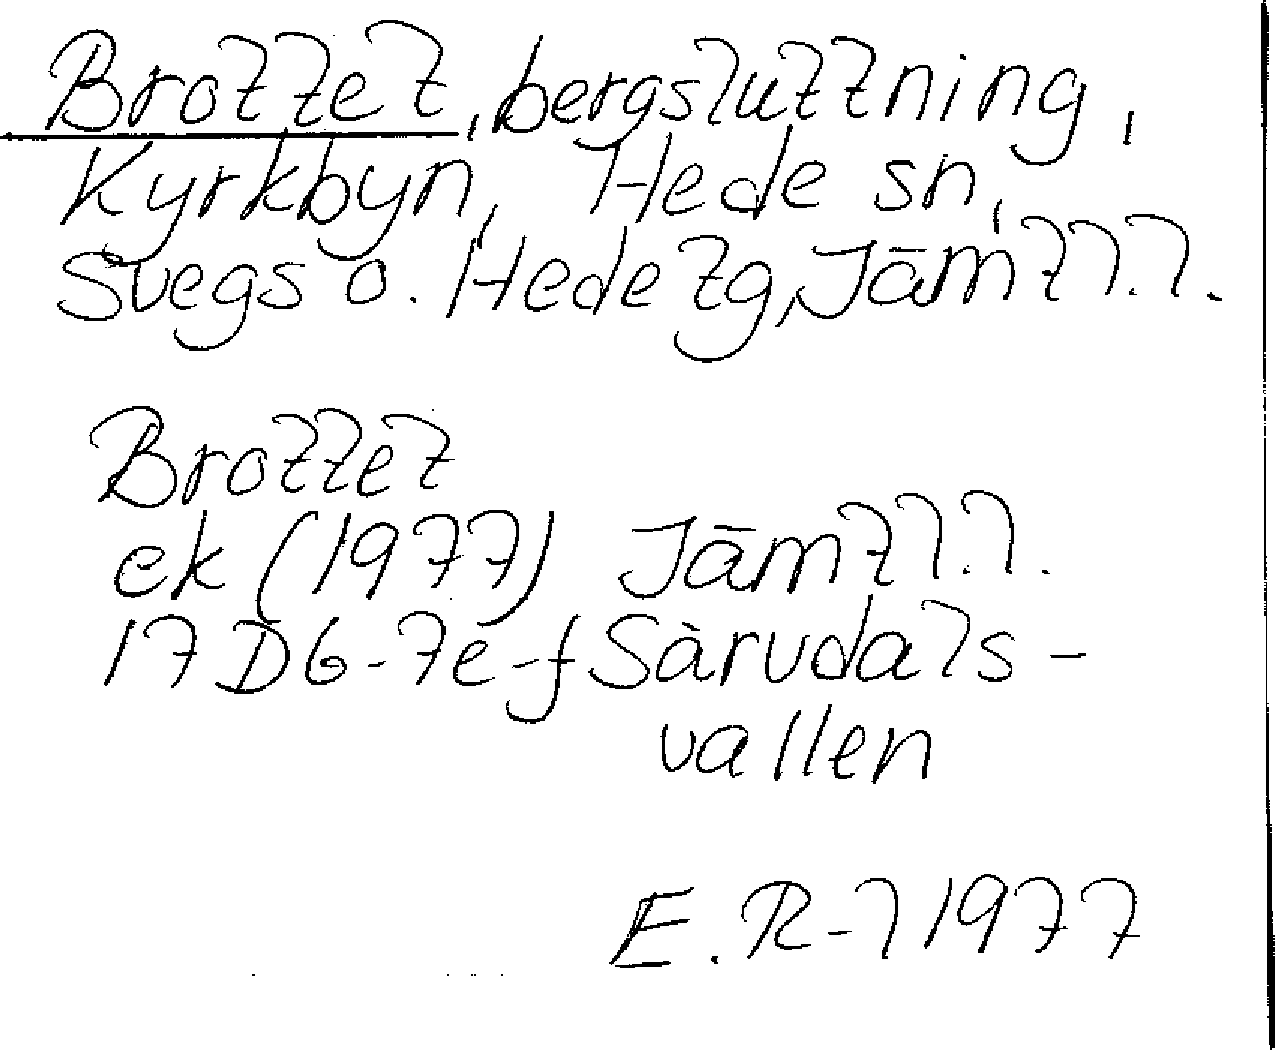 Brottet, bergsluttning,
Kyrkbyn, Hede sn,
Svegs o. Hede tg, Jämtl.l.
Brottet
ek (1977) Jämtl.l.
17D6-7e-f Särvdals-
vallen
E.R-l 1977